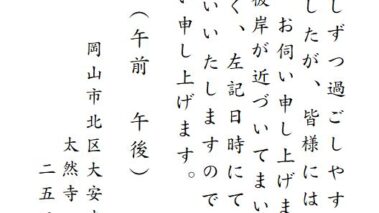 しずつ過ごしやす
したが、皆様には
お伺い申し上げま
彼岸が近づいてまい
く、左記日時にて
いいたしますので
い申し上げます。
（午前　午後）
岡山市北区大安
太然寺
二五